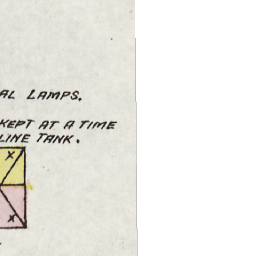 AL LAMPS.
KEPT AT A TIME
LINE TANK.
X
X